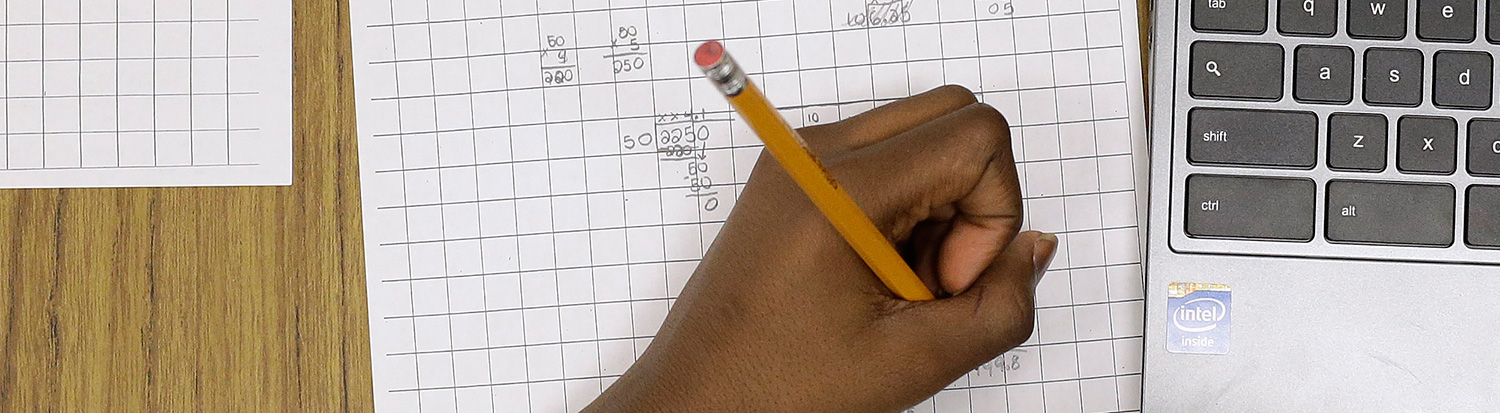 50
× 4
200
50
× 5
250
10 6.25
05
x x 4.1
50 2250
- 220
50
- 50
0
10
99.8
tab q w e
a s d
shift z x c
ctrl alt
intel
inside